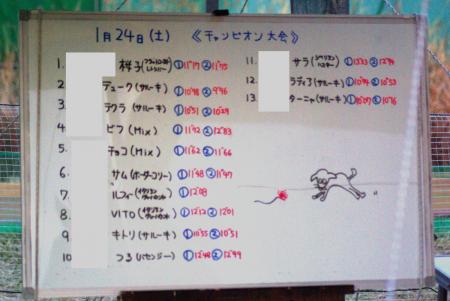 1月24日(土) 《チャンピオン大会》
1. 桜子(フラットコーテッドレトリバー) ①11"79 ②11"95
2. デューク(サルーキ) ①10"98 ②9"96
3. デクラ(サルーキ) ①10"51 ②10"29
4. ビフ(Mix) ①11"92 ②12"83
5. チョコ(Mix) ①11"62 ②11"66
6. サム(ボーダーコリー) ①11"48 ②11"47
7. ルフィー(イタリアングレイハウンド) ①12"08
8. VITO(イタリアングレイハウンド) ①12"12 ②12"01
9. キトリ(サルーキ) ①10"55 ②10"51
10. つる(バセンジー) ①12"48 ②12"99
11. サラ(シベリアンハスキー) ①13"33 ②12"94
12. ラディア(サルーキ) ①10"94 ②10"53
13. ターニャ(サルーキ) ①10"07 ②10"16